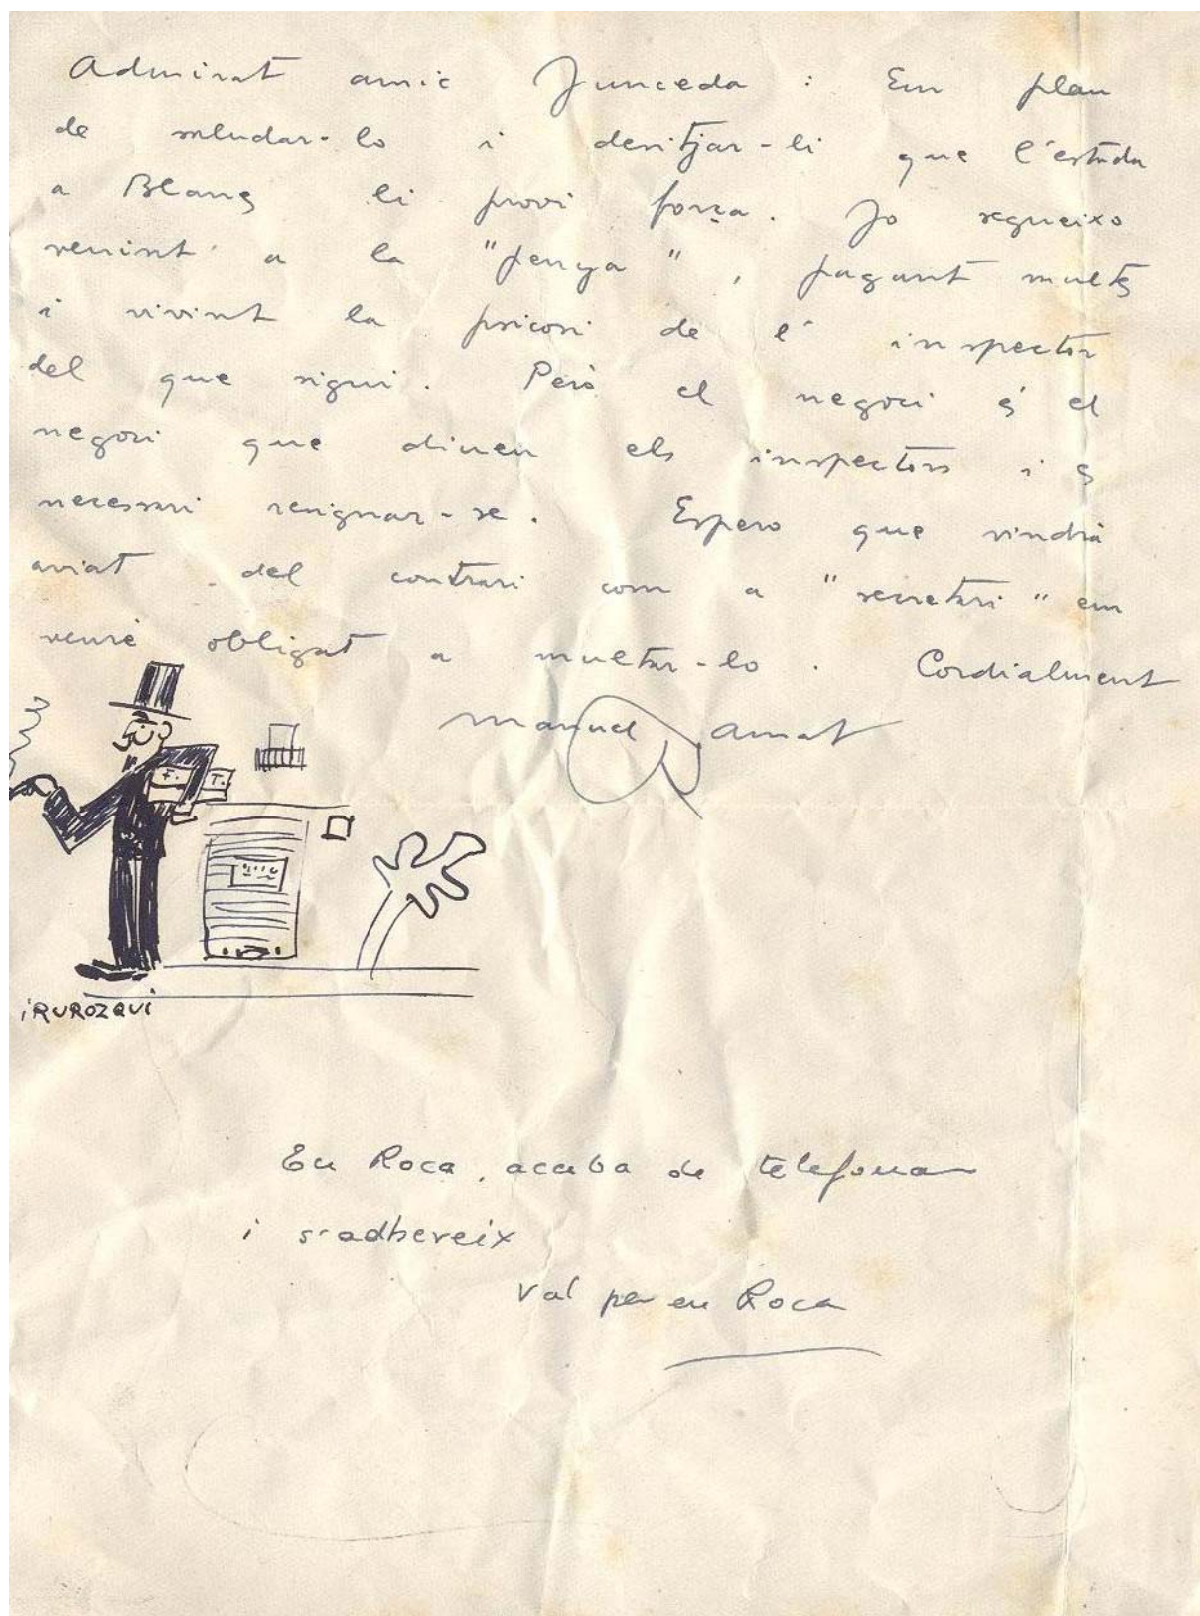 Admirat amic Junceda : Em plau
de saludar-lo i desitjar-li que l'estada
a Blanes li provi força. Jo segueixo
venint a la "penya", pagant multes
i vivint la psicosi de l' inspector
del que sigui. Però el negoci és el
negoci que diuen els inspectors i és
necessari resignar-se. Espero que vindrà
aviat del contrari com a "secretari" em
veuré obligat a multar-lo. Cordialment
Manuel Amat
F. T.
iRUROZQUi
En Roca, acaba de telefonar
i s'adhereix
Val per en Roca